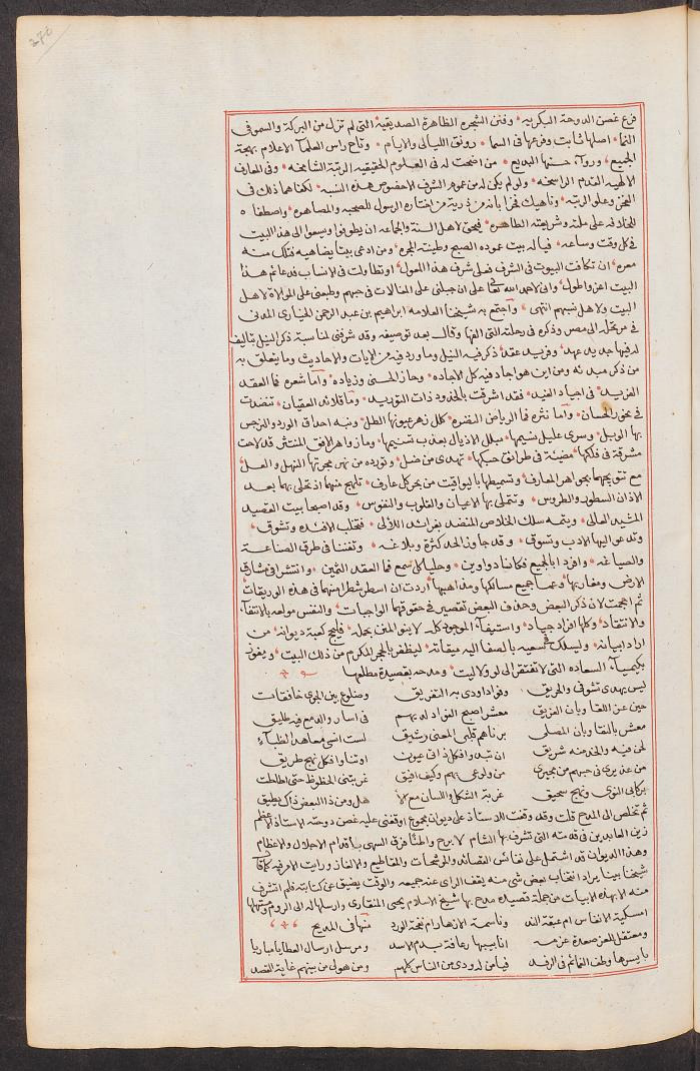 270
فرع غصن الدوحة البكرية وفنن الشجرة الطاهرة الصديقية التي لم تزل من البركة والسمو في
النما اصلها ثابت وفرعها في السما رونق الليالي والايام وتاج راس العلما الاعلام بهجة
الجميع ورواء حسنها البديع من اضحت له في العلوم الحقيقيه الرتبة الشامخه وفي المعارف
الالهيه القدم الراسخه ولو لم يكن له من عموم الشرف الاخصوص هذه النسبه لكفاها ذلك في
الفخر وعلو الرتبه وناهيك فخرا بانه من ذرية من اختاره الرسول للصحبه والمصاهره واصطفاه
للخلافه على ملته وشريعته الطاهره فيحق لاهل السنة والجماعه ان يطوفوا ويسعوا الى هذا البيت
في كل وقت وساعه فيا له بيت عموده الصبح وطينته المجره ومن ادعى بيتا يضاهيه فتلك منه
معره ان تكافت البيوت في الشرف فعلى شرف هذا المعول او تطاولت في الانساب فدعائم هذا
البيت اعز واطول واني لاحمد الله تعا على ان جبلني على المغالات في حبهم وطبعني على الموالاة لاهل
البيت ولاهل نسبهم انتهى واجتمع به شيخنا العلامه ابراهيم بن عبد الرحمن الخياري المدني
في مرتحله الى مصر وذكره في رحلته التي الفها وقال بعد توصيفه وقد شرفني لمناسبة ذكر النيل بتاليف
له فيها جديد عهد وفريد عقد ذكر فيه النيل وما ورد فيه من الايات والاحاديث وما يتعلق به
من ذكر مبدئه ومن اين هو اجاد فيه كل الاجاده وحاز الحسنى وزياده واما شعره فما العقد
الفريد في اجياد الغيد فقد اشرقت بالخدود ذات التوريد وما قلائد العقيان تنضدت
في نحور الحسان واما نثره فما الرياض النضره كلل زهر عيونها الطل ونبه احداق الورد والنرجس
بها الوبل وسرى عليل نسيمها مبلل الاذيال بعد بتسنيمها وما زواهر الافق المنتثر قد لاحت
مشرقة في فلكها مضيئة في طرائق حبكها تهدي من ضل وتورده من نهر مجرتها النهل والعل
مع تتويجهما بجواهر المعارف وتسميطها باليواقيت من بحر كل عارف تلهج منهما اذ تحلى بهما بعد
الاذان السطور والطروس وتتملى بها الاعيان والقلوب والنفوس وقد اصبحا بيت القصيد
المشيد العالي ويتيمة سلك الخلاص المنضد بفرائد اللألي فتخلب الافئده وتشوق
وتدعو اليها الادب وتسوق وقد جاوزا الحد كثرة وبلاغه وتفننا في طرق الصناعة
والصياغه وافردا بالجميع فكانا دواوين وحليا كل سمع فما العقد الثمين وانتشرا في مشارق
الارض ومغاربها وعما جميع مسالكها ومذاهبها اردت ان اسطر شطرا منهما في هذه الوريقات
ثم احجمت لان ذكر البعض وحذف البعض تقصير في حقوقهما الواجبات والنفس مولعه بالانتقاء
والانتقاد وكلها افراد جياد واستيفاء الموجود كله لا ينو المغن بحمله فليحج كعبة ديوانه من
اراد ابيانه وليسلك لسعيه بالصفا اليه ميقاته ليظفر بالحجر المكرم من ذلك البيت ويفوز
بكيمياء السعاده التي لا تفتقر الى لو ولا ليت ومدحه بقصيدة مطلعها
ليس يهدى تشوقي والحريق وفؤاد اودى به التفريق وضلوع بين الجوى خافقات
حين عن اللقا وبان الفريق معشر اصبح الفؤاد لديهم في اسار والدمع فيه طليق
معشر بالنقا وبان المصلى برناهم قلبي المعنى رشيق لست انسى معاهدا لظباء
لحن فيه والخد منه شريق ان تبدوا فكل ذاتي عيون او تناوا فكل نهج طريق
من عذيري في حبهم من مجيري من ولوعي بهم وكيف افيق غربتني الحظوظ حتى اطلعت
بركابي النوى ونهج سحيق غربة الشكل واللسان مع لا هل ومن ذا البعض ذاك يطيق
ثم تخلص الى المدح قلت وقد وقفت للاستاذ على ديوان مجموع اوقفني عليه غصن دوحته الاستاذ الاعظم
زين العابدين في قدمته التي تشرف بها الشام لا برح والهنا فرق السهى باقدام الاجلال والاعظام
وهذا الديوان قد اشتمل على نفائس القصائد والموشحات والمقاطيع والالغاز ورايت الامر فيه كما قال
شيخنا بيناير اد انتخاب بعض شي منه يقف الراى عند جميعه والوقت يضيق عن كتابته فلم اتشرف
منه الا بهذه الابيات من جملة قصيدة مدح بها شيخ الاسلام يحيى المنقاري وارسلها له الى الروم ومستهلها
امسكية الانفاس ام عبقة الند وناسمة الازهار ام نفحة الورد منها في المديح
ومعتقل للعز صعدة عزمه انابيبها رعافة بدم الاسد ومرسل ارسال العطايا مباريا
بايسرها وطف الغمائم في الرفد فيا من له ودي من الناس كلهم ومن هو لي من بينهم غاية القصد